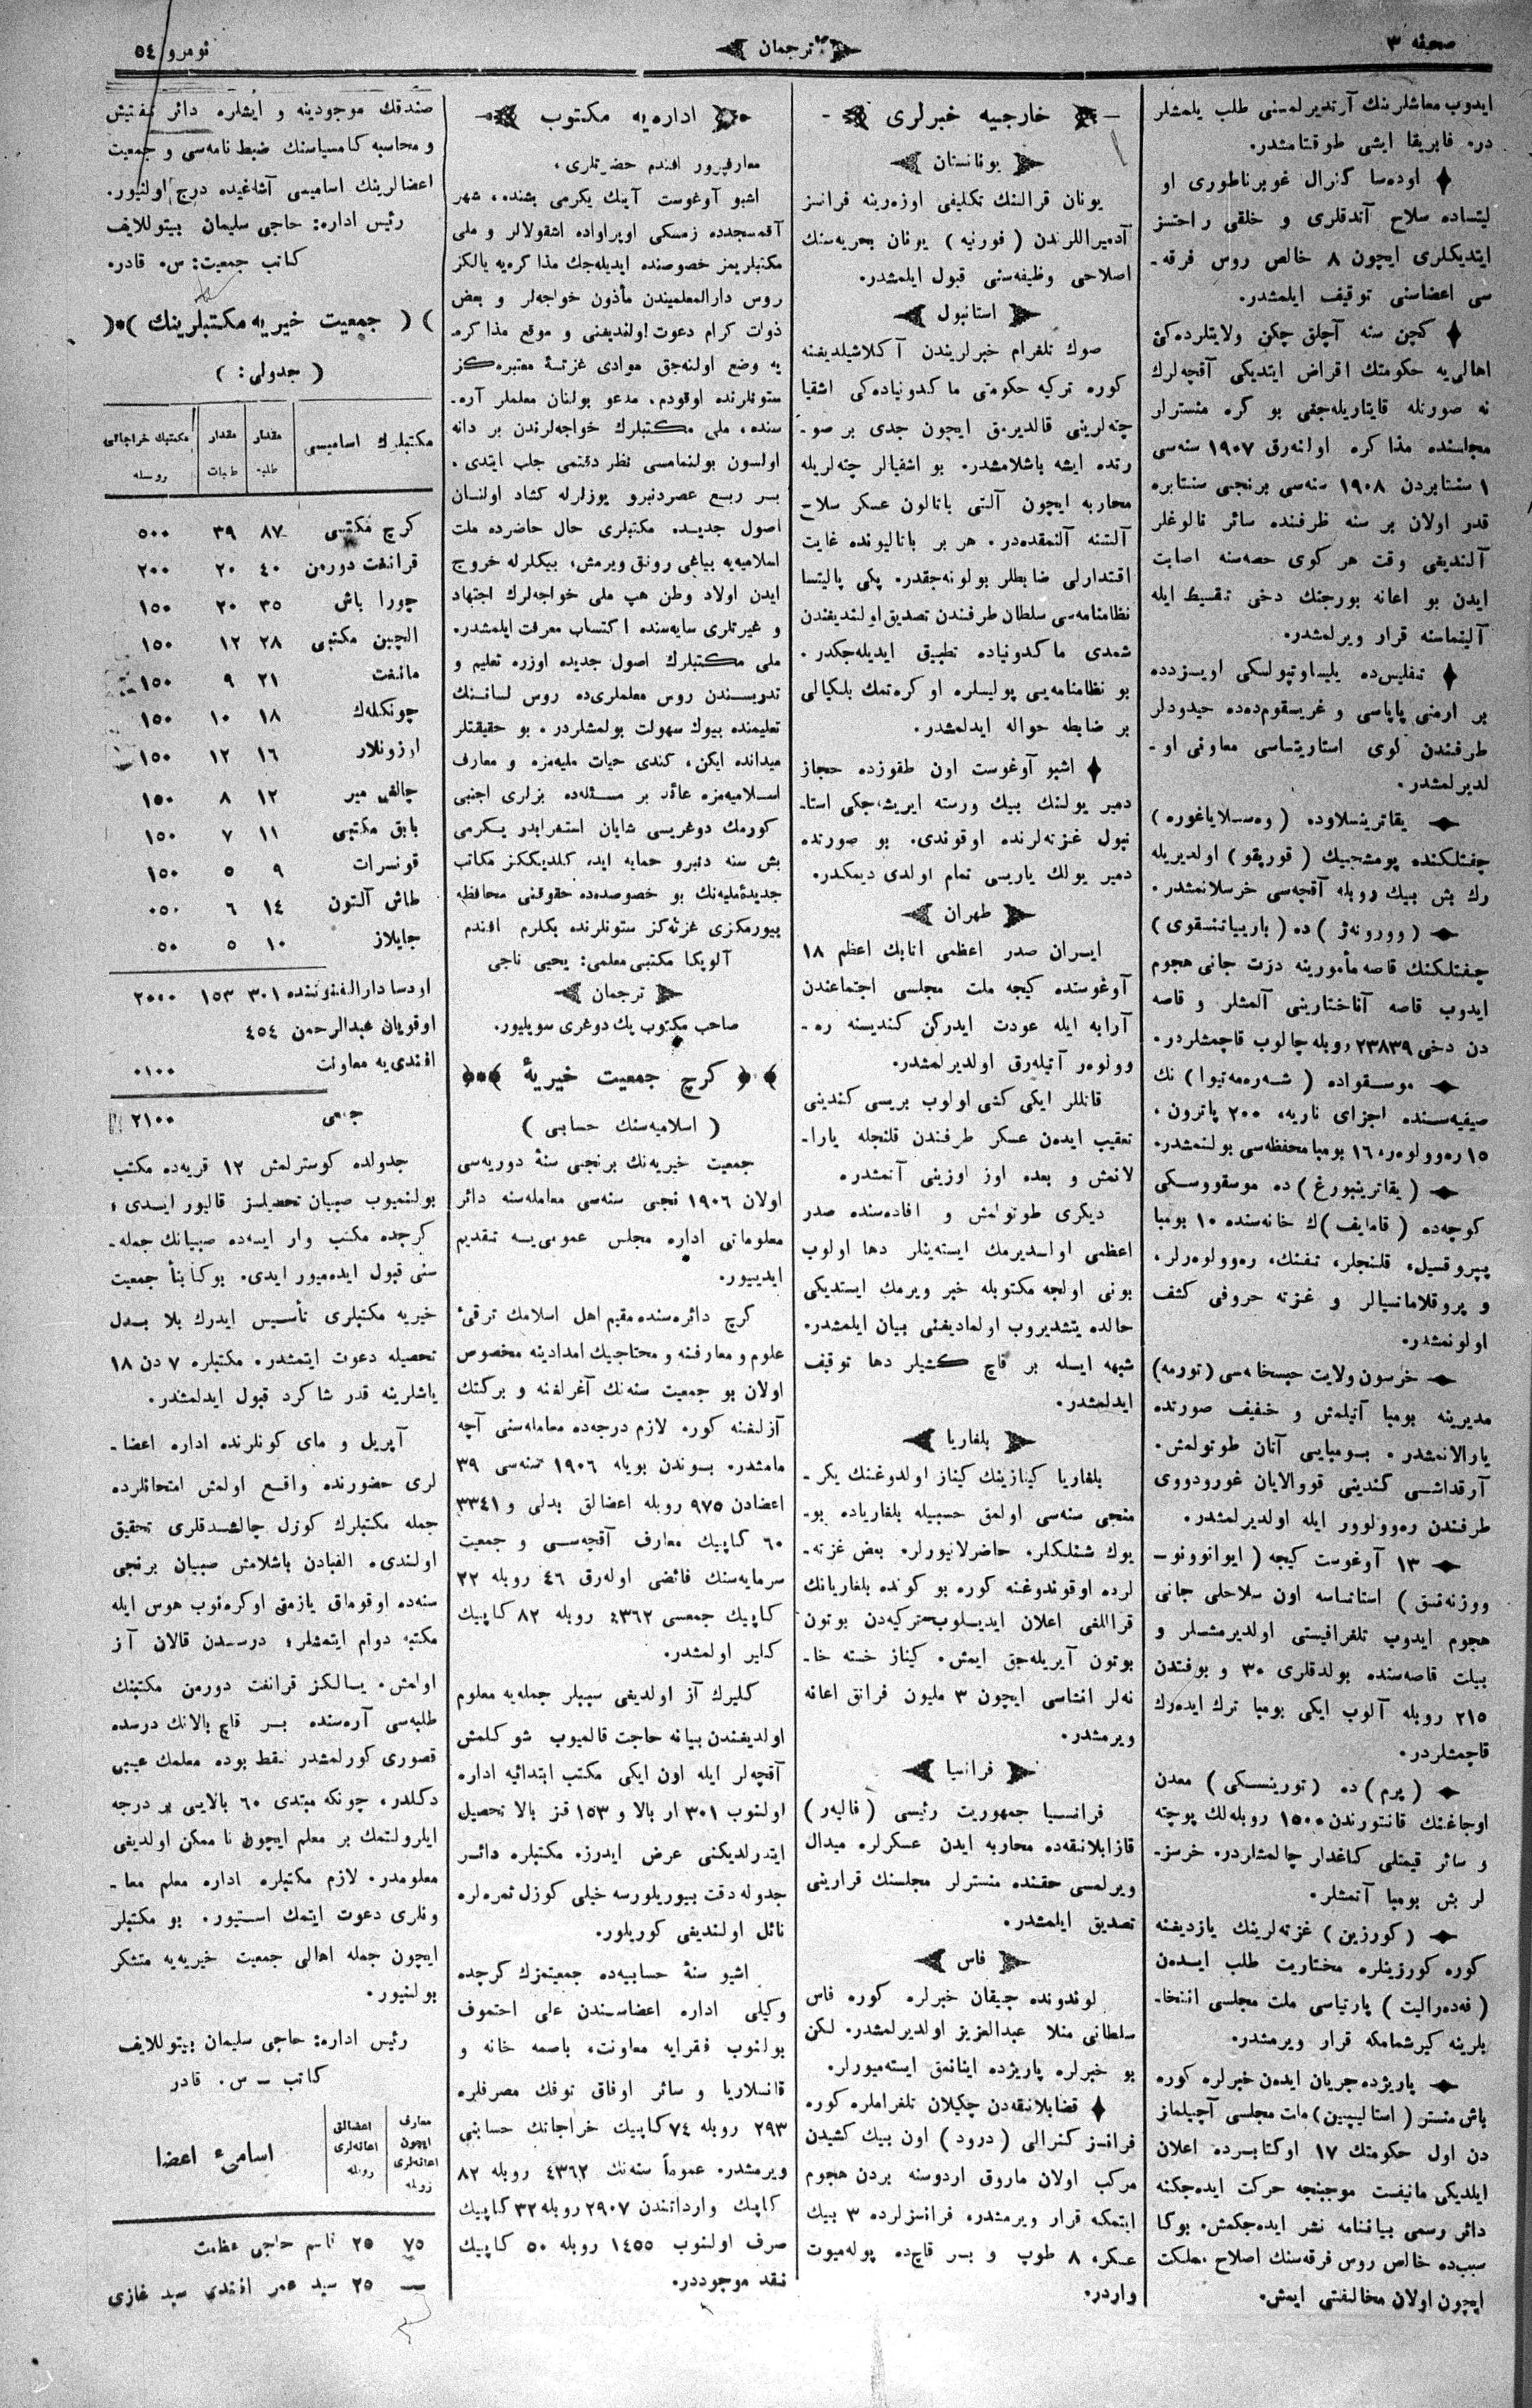 صحیفه ٣
ترجمان
نومرو ٥٤
ایدوب معاشلرینك آرتدیرلمسنی طلب یلمشلر
در. فابریقا ایشی طوقتامشدر.
اوده‌سا گنرال غوبرناطوری او
لیتساده سلاح آتدقلری و خلقی راحتسز
ایتدیكلری ایچون ٨ خالص روس فرقه ـ
سی اعضاسنی توقیف ایلمشدر.
كچن سنه آچلق چكن ولایتلرده‌كی
اهالی‌یه حكومتك اقراض ایتدیكی آقچه‌لرك
نه صورتله قایتاریله‌جغی بو كره منسترلر
مجلسنده مذا كره اولنه‌رق ١٩٠٧ سنه‌سی
١ سنتابردن ١٩٠٨ سنه‌سی برنجی سنتابره
قدر اولان بر سنه ظرفنده سائر نالوغلر
آلندیغی وقت هر كوی حصه‌سنه اصابت
ایدن بو اعانه بورجنك دخی تقسیط ایله
آلینماسنه قرار ویرلمشدر.
تفلیس‌ده یلیساوتپولسكی اویزدده
بر ارمنی پاپاسی و غریسقوم‌ده‌ده حیدودلر
طرفندن كوی استاریتاسی معاونی او ـ
لدیرلمشدر.
یقاترینسلاوده (وه‌سلایاغوره)
چفتلكنده پومشچیك (قورپقو) اولدیریله
رك بش بیك روبله آقچه‌سی خرسلانمشدر.
(وورونه‌ژ) ده (باریباتنسقوی)
چیفتلكنك قاصه مأمورینه درت جانی هجوم
ایدوب قاصه آناختارینی آلمشلر و قاصه
دن دخی ٢٣٨٣٩ روبله چالوب قاچمشلردر.
موسقواده (شه‌ره‌مه‌تیوا) نك
صیفیه‌سنده اجزای ناریه، ٢٠٠ پاترون،
١٥ ره‌وولوه‌ر، ١٦ بومبا محفظه‌سی بولنمشدر.
(یقاترینبورغ) ده موسقووسكی
كوچه‌ده (قامایف) ك خانه‌سنده ١٠ بومبا
پیروقسیل، قلنجلر، تفنك، ره‌وولوه‌رلر،
و پروقلاماتسیالر و غزته حروفی كشف
اولونمشدر.
خرسون ولایت حبسخانه‌سی (تورمه)
مدیرینه بومبا آتیلمش و خفیف صورتده
یارالانمشدر. بومبایی آتان طوتولمش.
آرقداشی كندینی قووالایان غورودووی
طرفندن ره‌وولوور ایله اولدیرلمشدر.
١٣ آوغوست كیجه (ایوانوونو ـ
ووزنه‌فسق) استانساسه اون سلاحلی جانی
هجوم ایدوب تلغرافیستی اولدیرمشلر و
بیلت قاصه‌سنده بولدقلری ٣٠ و بوفتدن
٢١٥ روبله آلوب ایكی بومبا ترك ایده‌رك
قاچمشلردر.
(پرم) ده (تورینسكی) معدن
اوجاغنك قانتورندن ١٥٠٠ روبله‌لك پوچته
و سائر قیمتلی كاغدلر چالمشلردر. خرسز ـ
لر بش بومبا آتمشلر.
(كورزین) غزته‌لرینك یازدیغنه
كوره كورزینلره مختاریت طلب ایدن
(فه‌ده‌رالیت) پارتیاسی ملت مجلسی انتخا ـ
بلرینه كیرشمامكه قرار ویرمشدر.
پاریژده جریان ایدن خبرلره كوره
باش منستر (استالیپین) ملت مجلسی آچیلماز
دن اول حكومتك ١٧ اوكتابرده اعلان
ایلدیكی مانیفست موجبنجه حركت ایده‌جكنه
دائر رسمی بیاننامه نشر ایده‌جكمش. بوكا
سبب‌ده خالص روس فرقه‌سنك اصلاح مملكت
ایچون اولان مخالفتی ایمش.
خارجیه خبرلری
یونانستان
یونان قرالنك تكلیفی اوزه‌رینه فرانسز
آدمیراللرندن (فورنیه) یونان بحریه‌سنك
اصلاحی وظیفه‌سنی قبول ایلمشدر.
استانبول
صوك تلغرام خبرلریندن آ كلاشیلدیغنه
كوره تركیه حكومتی ماكدونیاده‌كی اشقیا
چته‌لرینی قالدیرمق ایچون جدی بر صو ـ
رتده ایشه باشلامشدر. بو اشقیالر چته‌لریله
محاربه ایچون آلتی باتالون عسكر سلاح
آلتنه آلنمقده‌در. هر بر باتالیونده غایت
اقتدارلی ضابطلر بولونه‌جقدر. یكی پالیتسا
نظامنامه‌سی سلطان طرفندن تصدیق اولندیغندن
شمدی ماكدونیاده تطبیق ایدیله‌جكدر.
بو نظامنامه‌یی پولیسلره اوكرتمك بلكیالی
بر ضابطه حواله ایدلمشدر.
اشبو آوغوست اون طقوزده حجاز
دمیر یولنك بیك ورسته ایریشه‌جكی استا ـ
نبول غزته‌لرنده اوقوندی. بو صورتده
دمیر یولك یاریسی تمام اولدی دیمكدر.
طهران
ایران صدر اعظمی اتابك اعظم ١٨
آوغوستده كیجه ملت مجلسی اجتماعندن
آرابه ایله عودت ایدركن كندیسنه ره ـ
وولوه‌ر آتیله‌رق اولدیرلمشدر.
قاتللر ایكی كشی اولوب بریسی كندینی
تعقیب ایده‌ن عسكر طرفندن قلنجله یارا ـ
لانمش و بعده اوز اوزینی آتمشدر.
دیكری طوتولمش و افاده‌سنده صدر
اعظمی اولدیرمك ایسته‌ینلر دها اولوب
بونی اولجه مكتوبله خبر ویرمك ایستدیكی
حالده یتشدیروب اولمادیغنی بیان ایلمشدر.
شبهه ایله بر قاچ كشیلر دها توقیف
ایدلمشدر.
بلغاریا
بلغاریا كینازینك كیناز اولدوغنك یكر ـ
منجی سنه‌سی اولمق حسبیله بلغاریاده بو ـ
یوك شنلكلر. حاضرلانیورلر. بعض غزته ـ
لرده اوقوندوغنه كوره بو كونده بلغاریانك
قراللغی اعلان ایدیلوب تركیه‌دن بوتون
بوتون آیریله‌جق ایمش. كیناز خسته خا ـ
نه‌لر انشاسی ایچون ٣ ملیون فرانق اعانه
ویرمشدر.
فرانسیا
فرانسیا جمهوریت رئیسی (فالیه‌ر)
قازابلانقه‌ده محاربه ایدن عسكرلره میدال
ویرلمسی حقنده منسترلر مجلسنك قرارینی
تصدیق ایلمشدر.
فاس
لوندونده چیقان خبرلره كوره فاس
سلطانی منلا عبدالعزیز اولدیرلمشدر. لكن
بو خبرلره پاریژده اینانمق ایسته‌میورلر.
قضابلانقه‌دن چكیلان تلغراملره كوره
فرانسز كنرالی (درود) اون بیك كشیدن
مركب اولان ماروق اردوسنه بردن هجوم
ایتمكه قرار ویرمشدر. فرانسزلرده ٣ بیك
عسكر، ٨ طوپ و بر قاچ‌ده پوله‌میوت
واردر.
اداره‌یه مكتوب
معارفپرور افندم حضرتلری،
اشبو آوغوست آینك یكرمی بشنده، شهر
آقمسجدده زمسكی اوپراواده اشقولالر و ملی
مكتبلریمز خصوصنده ایدیله‌جك مذا كره‌یه یالكز
روس دارالمعلمیندن مأذون خواجه‌لر و بعض
ذوات كرام دعوت اولندیغنی و موقع مذا كره ـ
یه وضع اولنه‌جق موادی غزتهٔ معتبره‌كز
ستونلرنده اوقودم. مدعو بولنان معلملر آره ـ
سنده، ملی مكتبلرك خواجه‌لرندن بر دانه
اولسون بولنمامسی نظر دقتمی جلب ایتدی.
بر ربع عصردنبرو یوزلرله كشاد اولنان
اصول جدیده مكتبلری حال حاضرده ملت
اسلامیه‌یه بیاغی رونق ویرمش، بیكلرله خروج
ایدن اولاد وطن هپ ملی خواجه‌لرك اجتهاد
و غیرتلری سایه‌سنده اكتساب معرفت ایلمشدر.
ملی مكتبلرك اصول جدیده اوزره تعلیم و
تدریسندن روس معلملری‌ده روس لساننك
تعلیمنده بیوك سهولت بولمشلردر. بو حقیقتلر
میدانده ایكن، كندی حیات ملیه‌مزه و معارف
اسلامیه‌مزه عائد بر مسئله‌ده بزلری اجنبی
كورمك دوغریسی شایان استغرابدر یكرمی
بش سنه دنبرو حمایه ایده كلدیككز مكاتب
جدیدهٔ ملیه‌نك بو خصوصده‌ده حقوقنی محافظه
بیورمكزی غزته‌كز ستونلرنده بكلرم افندم
آلوپكا مكتبی معلمی: یحیی ناجی
ترجمان
صاحب مكتوب پك دوغری سویلیور.
كرچ جمعیت خیریهٔ
(اسلامیه‌سنك حسابی)
جمعیت خیریه‌نك برنجی سنهٔ دوریه‌سی
اولان ١٩٠٦ نجی سنه‌سی معامله‌سنه دائر
معلوماتی اداره مجلس عمومی‌یه تقدیم
ایدییور.
كرچ دائره‌سنده مقیم اهل اسلامك ترقیٔ
علوم و معارفنه و محتاجیك امدادینه مخصوص
اولان بو جمعیت سنه‌نك آغرلغنه و بركتك
آزلغنه كوره لازم درجه‌ده معامله‌سنی آچه
مامشدر. بوندن بویله ١٩٠٦ سنه‌سی ٣٩
اعضادن ٩٧٥ روبله اعضالق بدلی و ٣٣٤١
٦٠ كاپیك معارف آقچه‌سی و جمعیت
سرمایه‌سنك فائضی اوله‌رق ٤٦ روبله ٢٢
كاپیك جمعسی ٤٣٦٢ روبله ٨٢ كاپیك
كلیر اولمشدر.
كلیرك آز اولدیغی سببلر جمله‌یه معلوم
اولدیغندن بیانه حاجت قالمیوب شو كلمش
آقچه‌لر ایله اون ایكی مكتب ابتدائیه اداره
اولنوب ٣٠١ ار بالا و ١٥٣ قز بالا تحصیل
ایتدرلدیكنی عرض ایدرز. مكتبلره دائر
جدوله دقت بیوریلورسه خیلی كوزل ثمره‌لره
نائل اولندیغی كوریلور.
اشبو سنهٔ حسابیه‌ده جمعیتمزك كرچده
وكیلی اداره اعضاسندن علی احتموف
بولنوب فقرایه معاونت، باصمه خانه و
قانسلاریا و سائر اوفاق توفك مصرفلره
٢٩٣ روبله ٧٤ كاپیك خراجاتك حسابنی
ویرمشدر. عموماً سنه‌نك ٤٣٦٢ روبله ٨٢
كاپیك وارداتندن ٢٩٠٧ روبله ٣٢ كاپیك
صرف اولنوب ١٤٥٥ روبله ٥٠ كاپیك
نقد موجوددر.
صندقك موجودینه و ایشلره دائر تفتیش
و محاسبه كامسیاسنك ضبط نامه‌سی و جمعیت
اعضالرینك اسامیسی آشاغیده درج اولنیور.
رئیس اداره: حاجی سلیمان بیتوللایف
كاتب جمعیت: س. قادر.
جمعیت خیریه مكتبلرینك
(جدولی:)
مكتبلرك اسامیسی | مقدار طلبه | مقدار طلبات | مكتبك خراجاتی روبله
كرچ مكتبی ٨٧ ٣٩ ٥٠٠
قرانفت دورمن ٤٠ ٢٠ ٢٠٠
چورا باش ٣٥ ٢٠ ١٥٠
الچین مكتبی ٢٨ ١٢ ١٥٠
مانفت ٢١ ٩ ١٥٠
چونكله‌ك ١٨ ١٠ ١٥٠
ارزونلار ١٦ ١٢ ١٥٠
چالغی میر ١٢ ٨ ١٥٠
بابق مكتبی ١١ ٧ ١٥٠
قونسرات ٩ ٥ ١٥٠
طاش آلتون ١٤ ٦ ٠٥٠
جایلاز ١٠ ٥ ٥٠
اودسا دارالفنوننده ٣٠١ ١٥٣ ٢٠٠٠
اوقویان عبدالرحمن ٤٥٤
افندی‌یه معاونت ٠١٠٠
جمعی ٢١٠٠
جدولده كوسترلمش ١٢ قریه‌ده مكتب
بولنمیوب صبیان تحصیلسز قالیور ایدی،
كرچده مكتب وار ایسه‌ده صبیانك جمله ـ
سنی قبول ایده‌میور ایدی. بوكا بنأ جمعیت
خیریه مكتبلری تأسیس ایدرك بلا بدل
تحصیله دعوت ایتمشدر. مكتبلره ٧ دن ١٨
یاشلرینه قدر شاكرد قبول ایدلمشدر.
آپریل و مای كونلرنده اداره اعضا ـ
لری حضورنده واقع اولمش امتحانلرده
جمله مكتبلرك كوزل چالشدقلری تحقیق
اولندی. الفبادن باشلامش صبیان برنجی
سنه‌ده اوقوماق یازمق اوكره‌نوب هوس ایله
مكتبه دوام ایتمشلر، درسدن قالان آز
اولمش. یالكز قرانفت دورمن مكتبنك
طلبه‌سی آره‌سنده بر قاچ بالانك درسده
قصوری كورلمشدر فقط بوده معلمك عیبی
دكلدر، چونكه مبتدی ٦٠ بالایی بر درجه
ایلرولتمك بر معلم ایچون نا ممكن اولدیغی
معلومدر. لازم مكتبلره اداره معلم معا ـ
ونلری دعوت ایتمك استیور. بو مكتبلر
ایچون جمله اهالی جمعیت خیریه‌یه متشكر
بولنیور.
رئیس اداره: حاجی سلیمان بیتوللایف
كاتب ـ س. قادر
معارف ایچون اعانه‌لری روبله | اعضالق اعانه‌لری روبله | اسامیٔ اعضا
٧٥ ٢٥ قاسم حاجی عظمت
— ٢٥ سید عمر افندی سید غازی